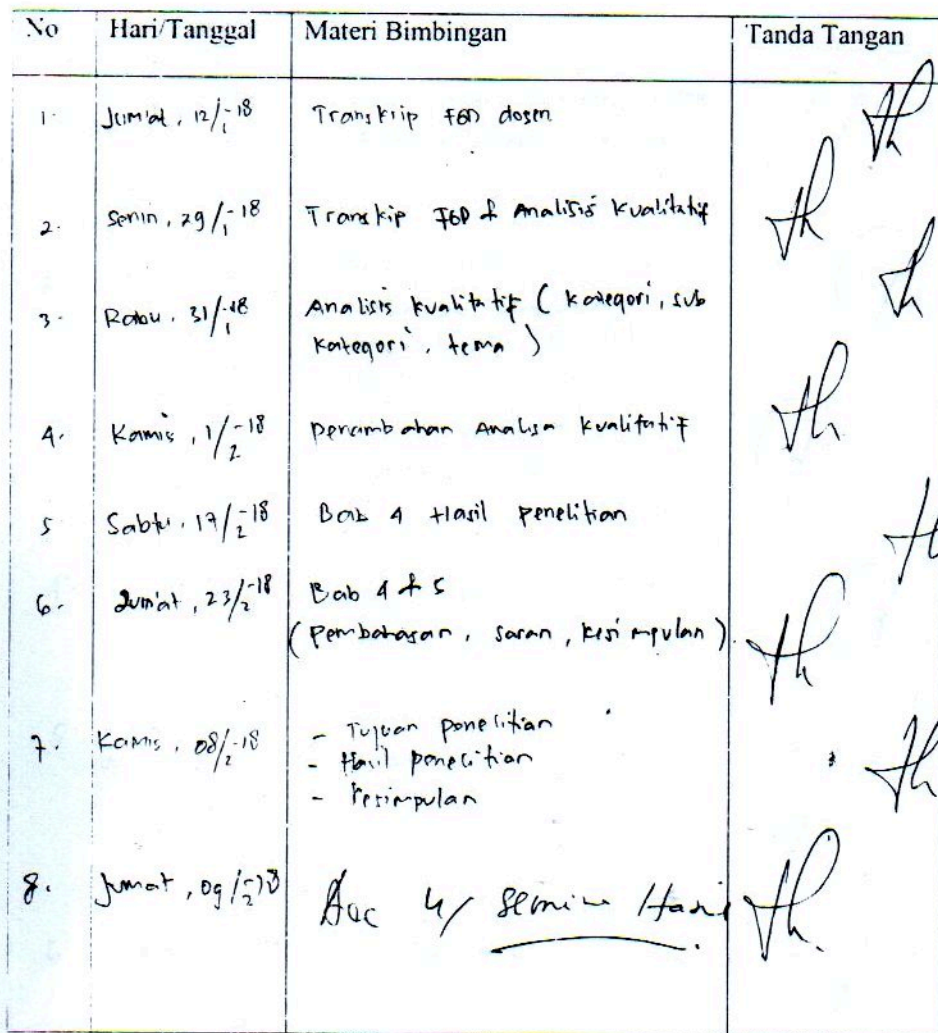 No Hari/Tanggal Materi Bimbingan Tanda Tangan
1. Jum'at, 12/1-18 Transkrip FGD dosen
2. Senin, 29/1-18 Transkip FGD & Analisis Kualitatif
3. Rabu, 31/1-18 Analisis kualitatif (kategori, sub
kategori, tema)
4. Kamis, 1/2-18 Penambahan Analisa Kualitatif
5 Sabtu, 17/2-18 Bab 4 Hasil penelitian
6. Jum'at, 23/2-18 Bab 4 & 5
(pembahasan, saran, kesimpulan)
7. Kamis, 08/2-18 - Tujuan penelitian
- Hasil penelitian
- Kesimpulan
8. Jumat, 09/2-18 Acc u/ Seminar Hasil